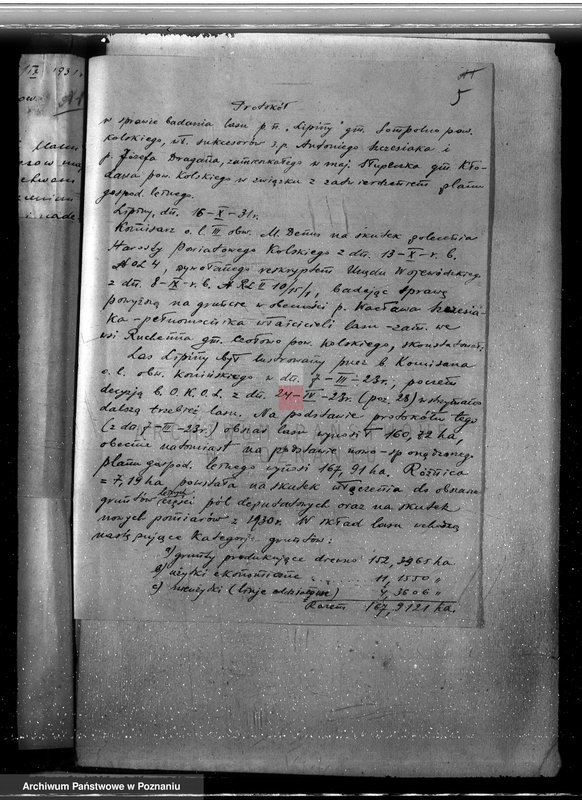 5
Protokół
w sprawie badania lasu p.n. „Lipiny" gm. Sompolno pow.
kolskiego, wł. sukcesorów ś.p. Antoniego Szczesiaka i
p. Józefa Dragana, zamieszkałego w maj. Słupeczka gm. Kło-
dawa pow. Kolskiego w związku z zatwierdzeniem planu
gospod. leśnego.
Lipiny, dn. 16-X-31r.
Komisarz o.l. III obw. M. Demus na skutek polecenia
Starosty Powiatowego Kolskiego z dn. 13-X-r. b.
wywołanego reskryptem Urzędu Wojewódzkiego
z dn. 8-X-r. b. badając sprawę
powyższą na gruncie w obecności p. Wacława Szczesia-
ka-pełnomocnika właścicieli lasu-zam. we
wsi Ruchenna gm. Czołowo pow. kolskiego, skonstatował:
Las Lipiny był lustrowany przez b. Komisarza
o.l. obw. konińskiego w dn. 7-III-23r., poczem
decyzją b. O.K.O.L. z dn. 24-IV-23r. (poz. 28) wstrzymano
dalszą trzebież lasu. Na podstawie protokółu tego
(z dn. 7-III-23r.) obszar lasu wynosił 160,72 ha,
obecnie natomiast na podstawie nowo-sporządzoneg.
planu gospod. leśnego wynosi 167,91 ha. Różnica
= 7,19 ha powstała na skutek włączenia do obszaru
gruntów leśnych części pól deputatowych oraz na skutek
nowych pomiarów z 1930r. W skład lasu wchodzą
następujące kategorje gruntów:
a) grunty produkujące drewno 152,3965 ha
b) użytki ekonomiczne . . . 11,1550 "
c) nieużytki (linje oddziałowe) 4,3606 "
Razem 167,9121 ha.
Archiwum Państwowe w Poznaniu